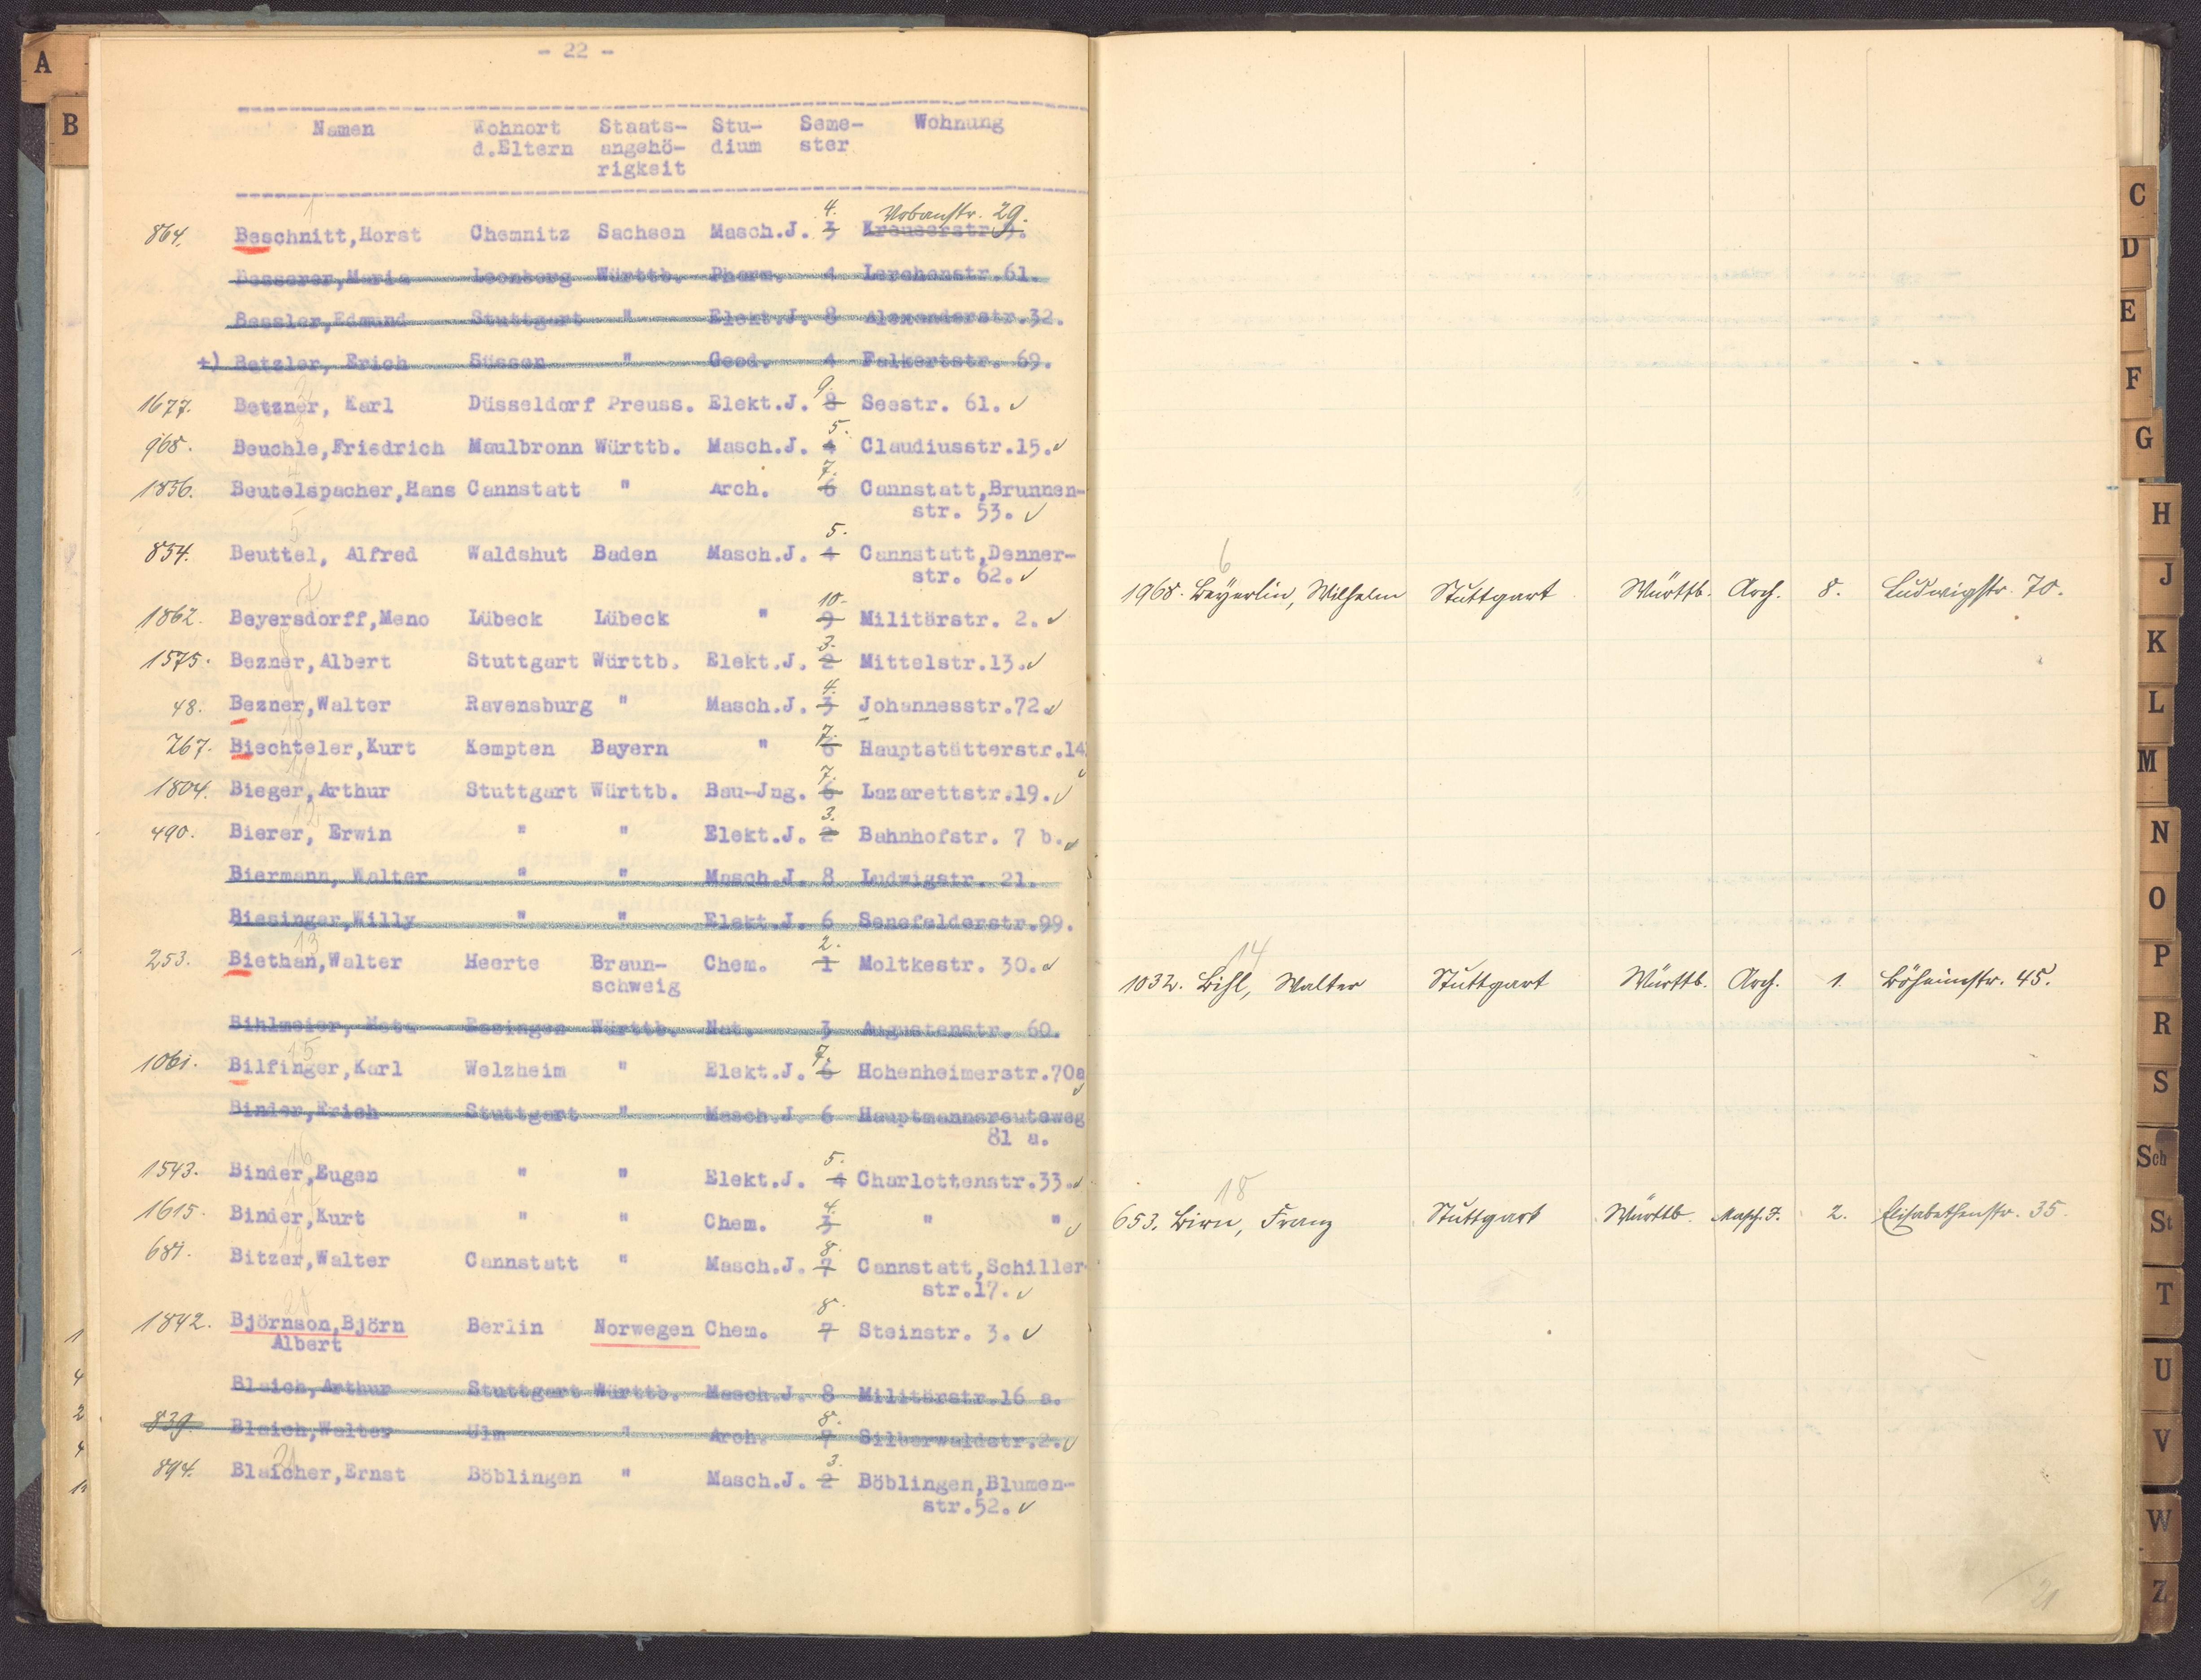 - 22 -
Namen Wohnort Staats- Stu- Seme- Wohnung
d.Eltern angehö- dium ster
rigkeit
4. Urbanstr. 29.
864. Beschnitt,Horst Chemnitz Sachsen Masch.J. 3 Kreuserstr.9.
Besserer,Maria Leonberg Württb. Pharm. 4 Lerchenstr.61.
Bessler,Edmund Stuttgart " Elekt.J. 8 Alexanderstr.32.
+) Betzler, Erich Süssen " Geod. 4 Falkertstr. 69.
1677. Betzner, Karl Düsseldorf Preuss. Elekt.J. 9. 8 Seestr. 61.
968. Beuchle,Friedrich Maulbronn Württb. Masch.J. 5. 4 Claudiusstr.15.
1836. Beutelspacher,Hans Cannstatt " Arch. 7. 6 Cannstatt,Brunnen-
str. 53.
834. Beuttel, Alfred Waldshut Baden Masch.J. 5. 4 Cannstatt,Denner-
str. 62.
1862. Beyersdorff,Meno Lübeck Lübeck " 10. 9 Militärstr. 2.
1575. Bezner,Albert Stuttgart Württb. Elekt.J. 3. 2 Mittelstr.13.
48. Bezner,Walter Ravensburg " Masch.J. 4. 3 Johannesstr.72.
767. Biechteler,Kurt Kempten Bayern " 7. 6 Hauptstätterstr.14
1804. Bieger,Arthur Stuttgart Württb. Bau-Jng. 7. 6 Lazarettstr.19.
490. Bierer, Erwin " " Elekt.J. 3. 2 Bahnhofstr. 7 b.
Biermann, Walter " " Masch.J. 8 Ludwigstr. 21.
Biesinger,Willy " " Elekt.J. 6 Senefelderstr.99.
253. Biethan,Walter Heerte Braun- Chem. 2. 1 Moltkestr. 30.
schweig
Bihlmeier, Württb. Nat. 3 Augustenstr. 60.
1061. Bilfinger,Karl Welzheim " Elekt.J. 7. 6 Hohenheimerstr.70a
Binder,Erich Stuttgart " Masch.J. 6 Hauptmannsreuteweg
81 a.
1543. Binder,Eugen " " Elekt.J. 5. 4 Charlottenstr.33.
1615. Binder,Kurt " " Chem. 4. 3 " "
681. Bitzer,Walter Cannstatt " Masch.J. 8. 7 Cannstatt,Schiller-
str.17.
1842. Björnson,Björn Berlin Norwegen Chem. 8. 7 Steinstr. 3.
Albert
Blaich,Arthur Stuttgart Württb. Masch.J. 8 Militärstr.16 a.
839. Blaich,Walter Ulm " Arch. 8. 7 Silberwaldstr.2.
894. Blaicher,Ernst Böblingen " Masch.J. 3. 2 Böblingen,Blumen-
str.52.
6
1968. Beyerlin, Wilhelm Stuttgart Württb. Arch. 8. Ludwigstr. 70.
14
1032. Bihl, Walter Stuttgart Württb. Arch. 1. Böheimstr. 45.
18
653. Birn, Franz Stuttgart Württb. Masch.J. 2. Elisabethenstr. 35.
21
A
B
C
D
E
F
G
H
J
K
L
M
N
O
P
R
S
Sch
St
T
U
V
W
Z